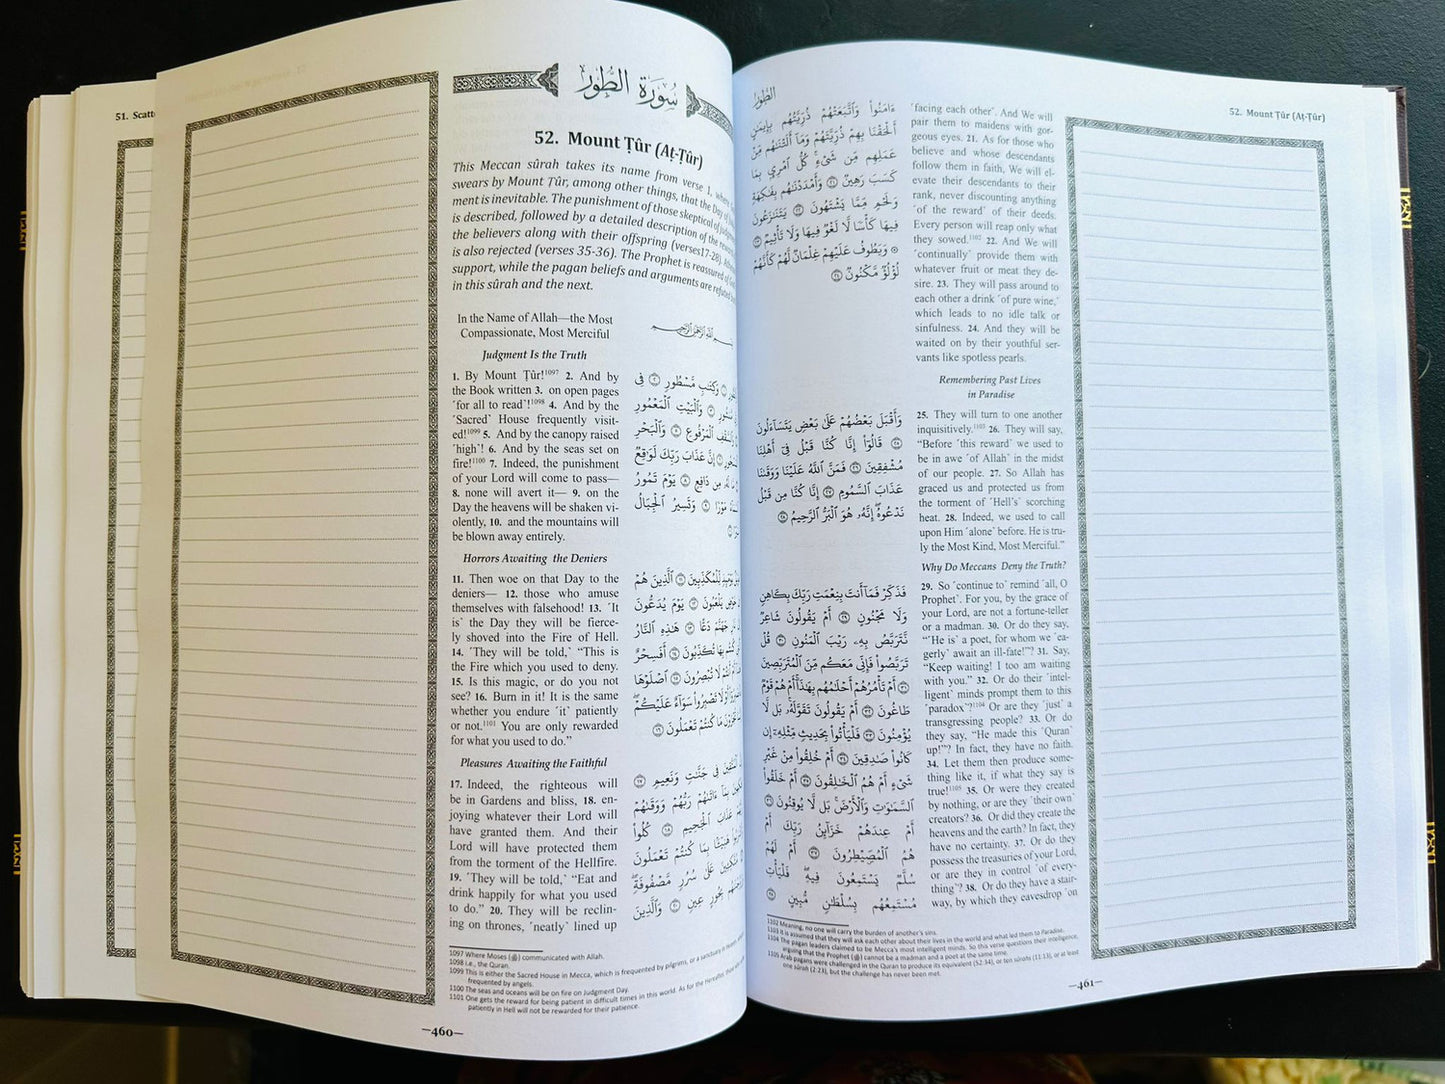 51. Scatte
سُورَةُ الطُّور
52. Mount Ṭûr (Aṭ-Ṭûr)
This Meccan sûrah takes its name from verse 1, where
swears by Mount Ṭûr, among other things, that the Day of Judg-
ment is inevitable. The punishment of those skeptical of Judgment
is described, followed by a detailed description of the reward
the believers along with their offspring (verses17-28).
is also rejected (verses 35-36). The Prophet is reassured of
support, while the pagan beliefs and arguments are refuted
in this sûrah and the next.
In the Name of Allah—the Most
Compassionate, Most Merciful
Judgment Is the Truth
1. By Mount Ṭûr!1097 2. And by
the Book written 3. on open pages
˹for all to read˺!1098 4. And by the
˹Sacred˺ House frequently visit-
ed!1099 5. And by the canopy raised
˹high˺! 6. And by the seas set on
fire!1100 7. Indeed, the punishment
of your Lord will come to pass—
8. none will avert it— 9. on the
Day the heavens will be shaken vi-
olently, 10. and the mountains will
be blown away entirely.
Horrors Awaiting the Deniers
11. Then woe on that Day to the
deniers— 12. those who amuse
themselves with falsehood! 13. ˹It
is˺ the Day they will be fierce-
ly shoved into the Fire of Hell.
14. ˹They will be told,˺ “This is
the Fire which you used to deny.
15. Is this magic, or do you not
see? 16. Burn in it! It is the same
whether you endure ˹it˺ patiently
or not.1101 You are only rewarded
for what you used to do.”
Pleasures Awaiting the Faithful
17. Indeed, the righteous will
be in Gardens and bliss, 18. en-
joying whatever their Lord will
have granted them. And their
Lord will have protected them
from the torment of the Hellfire.
19. ˹They will be told,˺ “Eat and
drink happily for what you used
to do.” 20. They will be reclin-
ing on thrones, ˹neatly˺ lined up
بِسْمِ اللَّهِ الرَّحْمَٰنِ الرَّحِيمِ
وَكِتَٰبٍ مَّسْطُورٍ ٢ فِى
وَٱلْبَيْتِ ٱلْمَعْمُورِ
ٱلْمَرْفُوعِ ٥ وَٱلْبَحْرِ
إِنَّ عَذَابَ رَبِّكَ لَوَٰقِعٌ
مِن دَافِعٍ ٨ يَوْمَ تَمُورُ
مَوْرًا ٩ وَتَسِيرُ ٱلْجِبَالُ
لِّلْمُكَذِّبِينَ ١١ ٱلَّذِينَ هُمْ
يَلْعَبُونَ ١٢ يَوْمَ يُدَعُّونَ
جَهَنَّمَ دَعًّا ١٣ هَٰذِهِ ٱلنَّارُ
بِهَا تُكَذِّبُونَ ١٤ أَفَسِحْرٌ
لَا تُبْصِرُونَ ١٥ ٱصْلَوْهَا
تَصْبِرُوا۟ سَوَآءٌ عَلَيْكُمْ
مَا كُنتُمْ تَعْمَلُونَ ١٦
فِى جَنَّٰتٍ وَنَعِيمٍ ١٧
بِمَآ ءَاتَىٰهُمْ رَبُّهُمْ وَوَقَىٰهُمْ
عَذَابَ ٱلْجَحِيمِ ١٨ كُلُوا۟
هَنِيٓـًٔۢا بِمَا كُنتُمْ تَعْمَلُونَ
عَلَىٰ سُرُرٍ مَّصْفُوفَةٍ
بِحُورٍ عِينٍ ٢٠ وَٱلَّذِينَ
1097 Where Moses (ﷺ) communicated with Allah.
1098 i.e., the Quran.
1099 This is either the Sacred House in Mecca, which is frequented by pilgrims, or a sanctuary in heaven
frequented by angels.
1100 The seas and oceans will be on fire on Judgment Day.
1101 One gets the reward for being patient in difficult times in this world. As for the Hereafter,
patiently in Hell will not be rewarded for their patience.
—460—
الطُّور
52. Mount Ṭûr (Aṭ-Ṭûr)
ءَامَنُوا۟ وَٱتَّبَعَتْهُمْ ذُرِّيَّتُهُم بِإِيمَٰنٍ
أَلْحَقْنَا بِهِمْ ذُرِّيَّتَهُمْ وَمَآ أَلَتْنَٰهُم مِّنْ
عَمَلِهِم مِّن شَىْءٍ كُلُّ ٱمْرِئٍۭ بِمَا
كَسَبَ رَهِينٌ ٢١ وَأَمْدَدْنَٰهُم بِفَٰكِهَةٍ
وَلَحْمٍ مِّمَّا يَشْتَهُونَ ٢٢ يَتَنَٰزَعُونَ
فِيهَا كَأْسًا لَّا لَغْوٌ فِيهَا وَلَا تَأْثِيمٌ ٢٣
۞ وَيَطُوفُ عَلَيْهِمْ غِلْمَانٌ لَّهُمْ كَأَنَّهُمْ
لُؤْلُؤٌ مَّكْنُونٌ ٢٤
وَأَقْبَلَ بَعْضُهُمْ عَلَىٰ بَعْضٍ يَتَسَآءَلُونَ
٢٥ قَالُوٓا۟ إِنَّا كُنَّا قَبْلُ فِىٓ أَهْلِنَا
مُشْفِقِينَ ٢٦ فَمَنَّ ٱللَّهُ عَلَيْنَا وَوَقَىٰنَا
عَذَابَ ٱلسَّمُومِ ٢٧ إِنَّا كُنَّا مِن قَبْلُ
نَدْعُوهُ إِنَّهُۥ هُوَ ٱلْبَرُّ ٱلرَّحِيمُ ٢٨
فَذَكِّرْ فَمَآ أَنتَ بِنِعْمَتِ رَبِّكَ بِكَاهِنٍ
وَلَا مَجْنُونٍ ٢٩ أَمْ يَقُولُونَ شَاعِرٌ
نَّتَرَبَّصُ بِهِۦ رَيْبَ ٱلْمَنُونِ ٣٠ قُلْ
تَرَبَّصُوا۟ فَإِنِّى مَعَكُم مِّنَ ٱلْمُتَرَبِّصِينَ
٣١ أَمْ تَأْمُرُهُمْ أَحْلَٰمُهُم بِهَٰذَآ أَمْ هُمْ قَوْمٌ
طَاغُونَ ٣٢ أَمْ يَقُولُونَ تَقَوَّلَهُۥ بَل لَّا
يُؤْمِنُونَ ٣٣ فَلْيَأْتُوا۟ بِحَدِيثٍ مِّثْلِهِۦٓ إِن
كَانُوا۟ صَٰدِقِينَ ٣٤ أَمْ خُلِقُوا۟ مِنْ غَيْرِ
شَىْءٍ أَمْ هُمُ ٱلْخَٰلِقُونَ ٣٥ أَمْ خَلَقُوا۟
ٱلسَّمَٰوَٰتِ وَٱلْأَرْضَ بَل لَّا يُوقِنُونَ ٣٦
أَمْ عِندَهُمْ خَزَآئِنُ رَبِّكَ أَمْ
هُمُ ٱلْمُصَۣيْطِرُونَ ٣٧ أَمْ لَهُمْ
سُلَّمٌ يَسْتَمِعُونَ فِيهِ فَلْيَأْتِ
مُسْتَمِعُهُم بِسُلْطَٰنٍ مُّبِينٍ ٣٨
˹facing each other˺. And We will
pair them to maidens with gor-
geous eyes. 21. As for those who
believe and whose descendants
follow them in faith, We will el-
evate their descendants to their
rank, never discounting anything
˹of the reward˺ of their deeds.
Every person will reap only what
they sowed.1102 22. And We will
˹continually˺ provide them with
whatever fruit or meat they de-
sire. 23. They will pass around to
each other a drink ˹of pure wine,˺
which leads to no idle talk or
sinfulness. 24. And they will be
waited on by their youthful ser-
vants like spotless pearls.
Remembering Past Lives
in Paradise
25. They will turn to one another
inquisitively.1103 26. They will say,
“Before ˹this reward˺ we used to
be in awe ˹of Allah˺ in the midst
of our people. 27. So Allah has
graced us and protected us from
the torment of ˹Hell’s˺ scorching
heat. 28. Indeed, we used to call
upon Him ˹alone˺ before. He is tru-
ly the Most Kind, Most Merciful.”
Why Do Meccans Deny the Truth?
29. So ˹continue to˺ remind ˹all, O
Prophet˺. For you, by the grace of
your Lord, are not a fortune-teller
or a madman. 30. Or do they say,
“˹He is˺ a poet, for whom we ˹ea-
gerly˺ await an ill-fate!”? 31. Say,
“Keep waiting! I too am waiting
with you.” 32. Or do their ˹intel-
ligent˺ minds prompt them to this
˹paradox˺?1104 Or are they ˹just˺ a
transgressing people? 33. Or do
they say, “He made this ˹Quran˺
up!”? In fact, they have no faith.
34. Let them then produce some-
thing like it, if what they say is
true!1105 35. Or were they created
by nothing, or are they ˹their own˺
creators? 36. Or did they create the
heavens and the earth? In fact, they
have no certainty. 37. Or do they
possess the treasuries of your Lord,
or are they in control ˹of every-
thing˺? 38. Or do they have a stair-
way, by which they eavesdrop ˹on
1102 Meaning, no one will carry the burden of another’s sins.
1103 It is assumed that they will ask each other about their lives in the world and what led them to Paradise.
1104 The pagan leaders claimed to be Mecca’s most intelligent minds. So this verse questions their intelligence,
arguing that the Prophet (ﷺ) cannot be a madman and a poet at the same time.
1105 Arab pagans were challenged in the Quran to produce its equivalent (52:34), or ten sûrahs (11:13), or at least
one sûrah (2:23), but the challenge has never been met.
—461—